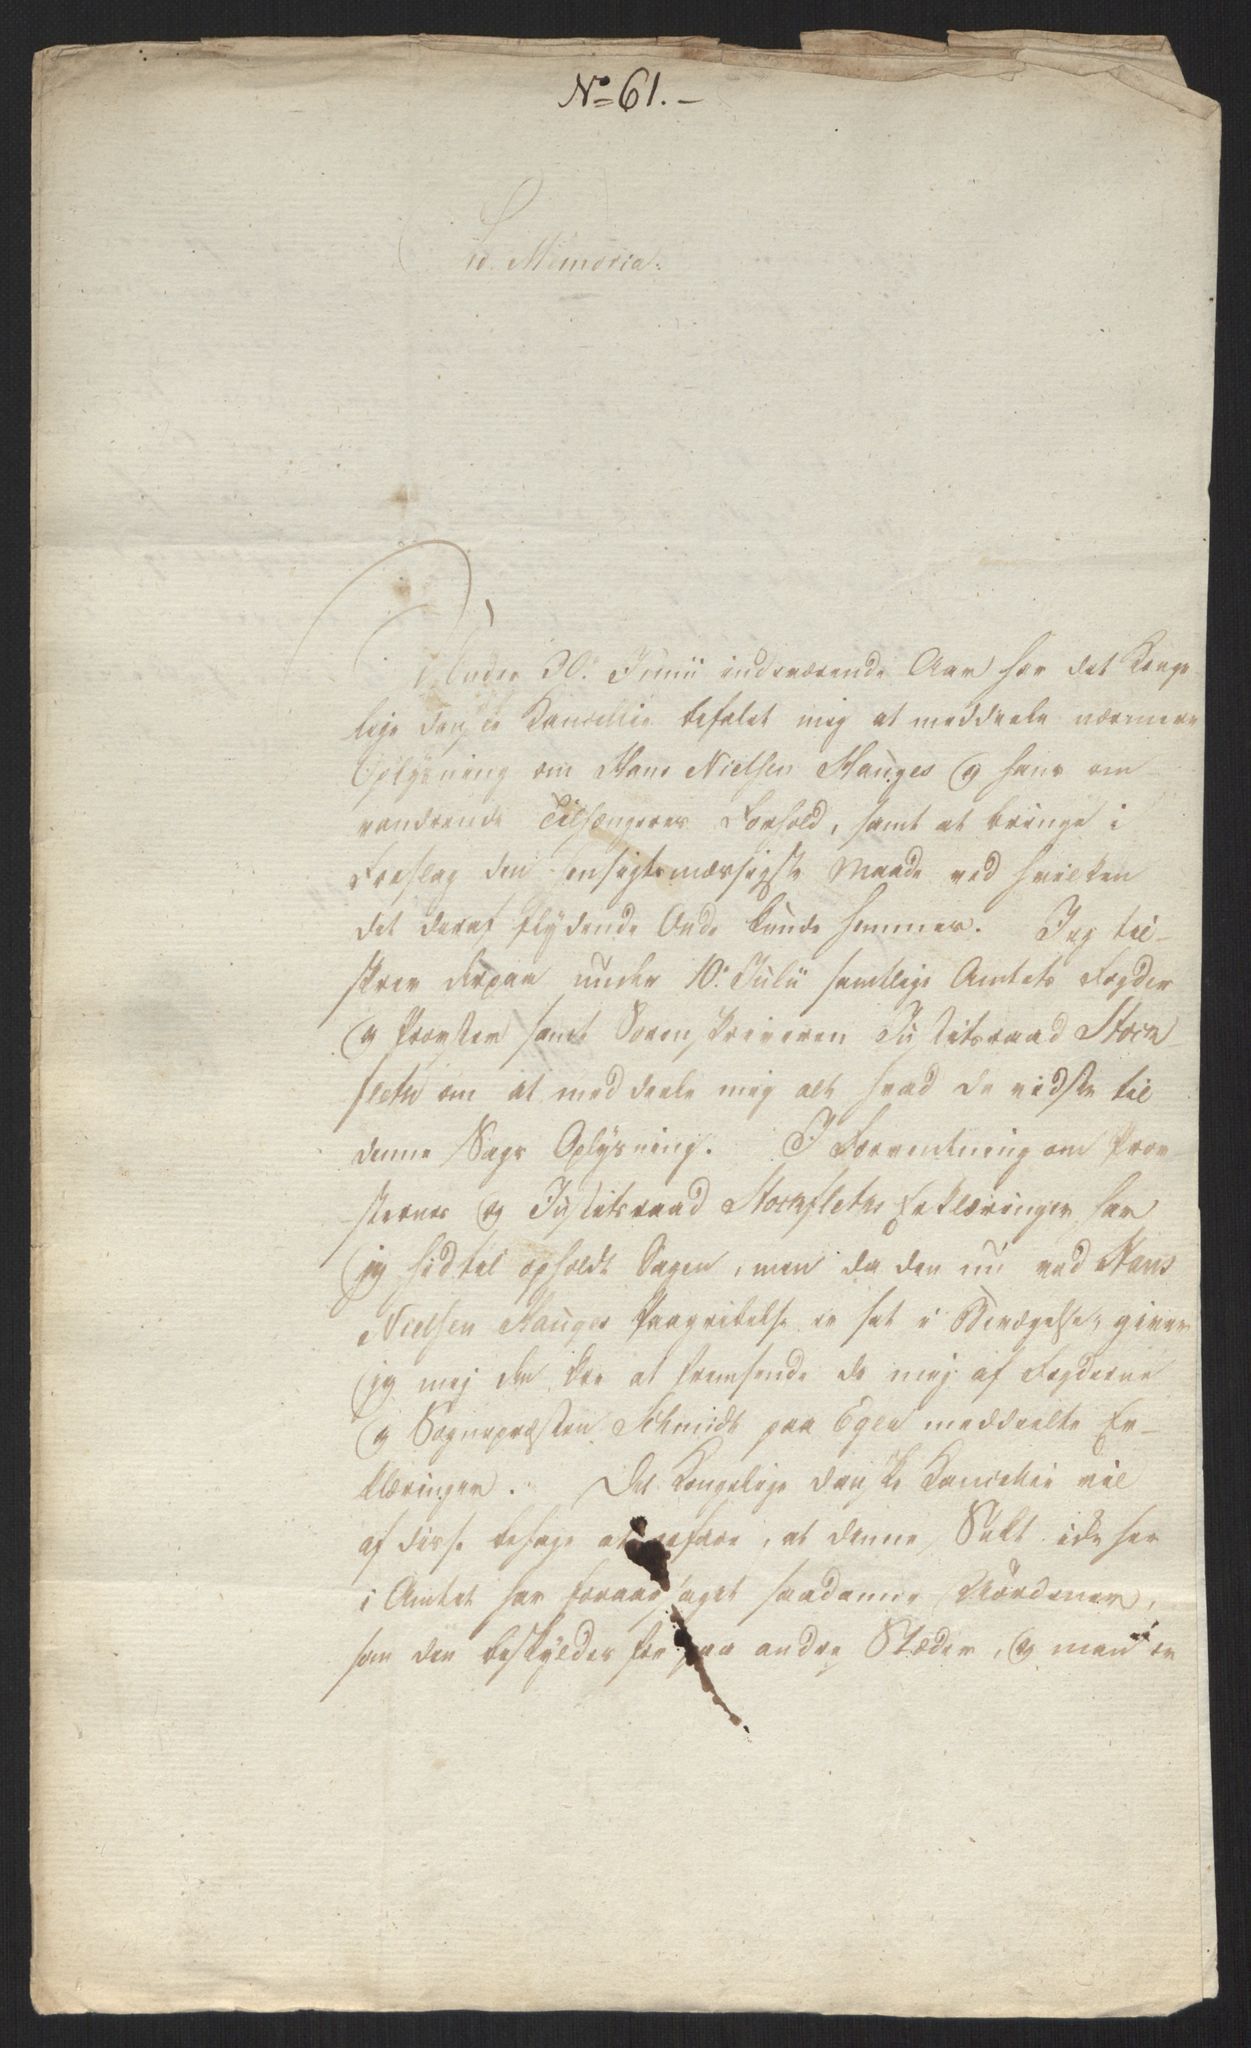 No 61. –
P. Memoria.
Under 30. Junii indeværende Aar har det Konge
lige danske Cancellie befalet mig at meddeele nærmere
Oplysning om Hans Nielsen Hauges og hans om
vandrende Tilhængeres Forhold, samt at bringe i
Forslag den hensigtsmæssigste Maade ved hvilken
det deraf flydende Onde kunde hemmes. Jeg til-
skrev derpaa under 10. Julii samtlige Amtets Fogder
og Provster samt Sorenskriveren Justitsraad Stock
fleth om at meddeele mig alt hvad de vidste til
denne Sags Oplysning. I Forventning om Prov
sternes og Justitsraad Stockfleths Erklæringer har
jeg hidtil opholdt Sagen, men da den nu ved Hans
Nielsen Hauges Paagribelse er sat i Bevægelse, giver
jeg mig den Ære at fremsende de mig af Fogderne
og Sognepræsten Schmidt paa Eger meddeelte Er-
klæringer. Det Kongelige danske Cancellie vil
af disse behage at erfare, at denne Sekt ikke her
i Amtet har foraarsaget saadanne Uordener,
som den beskyldes for paa andre Stæder, og man er